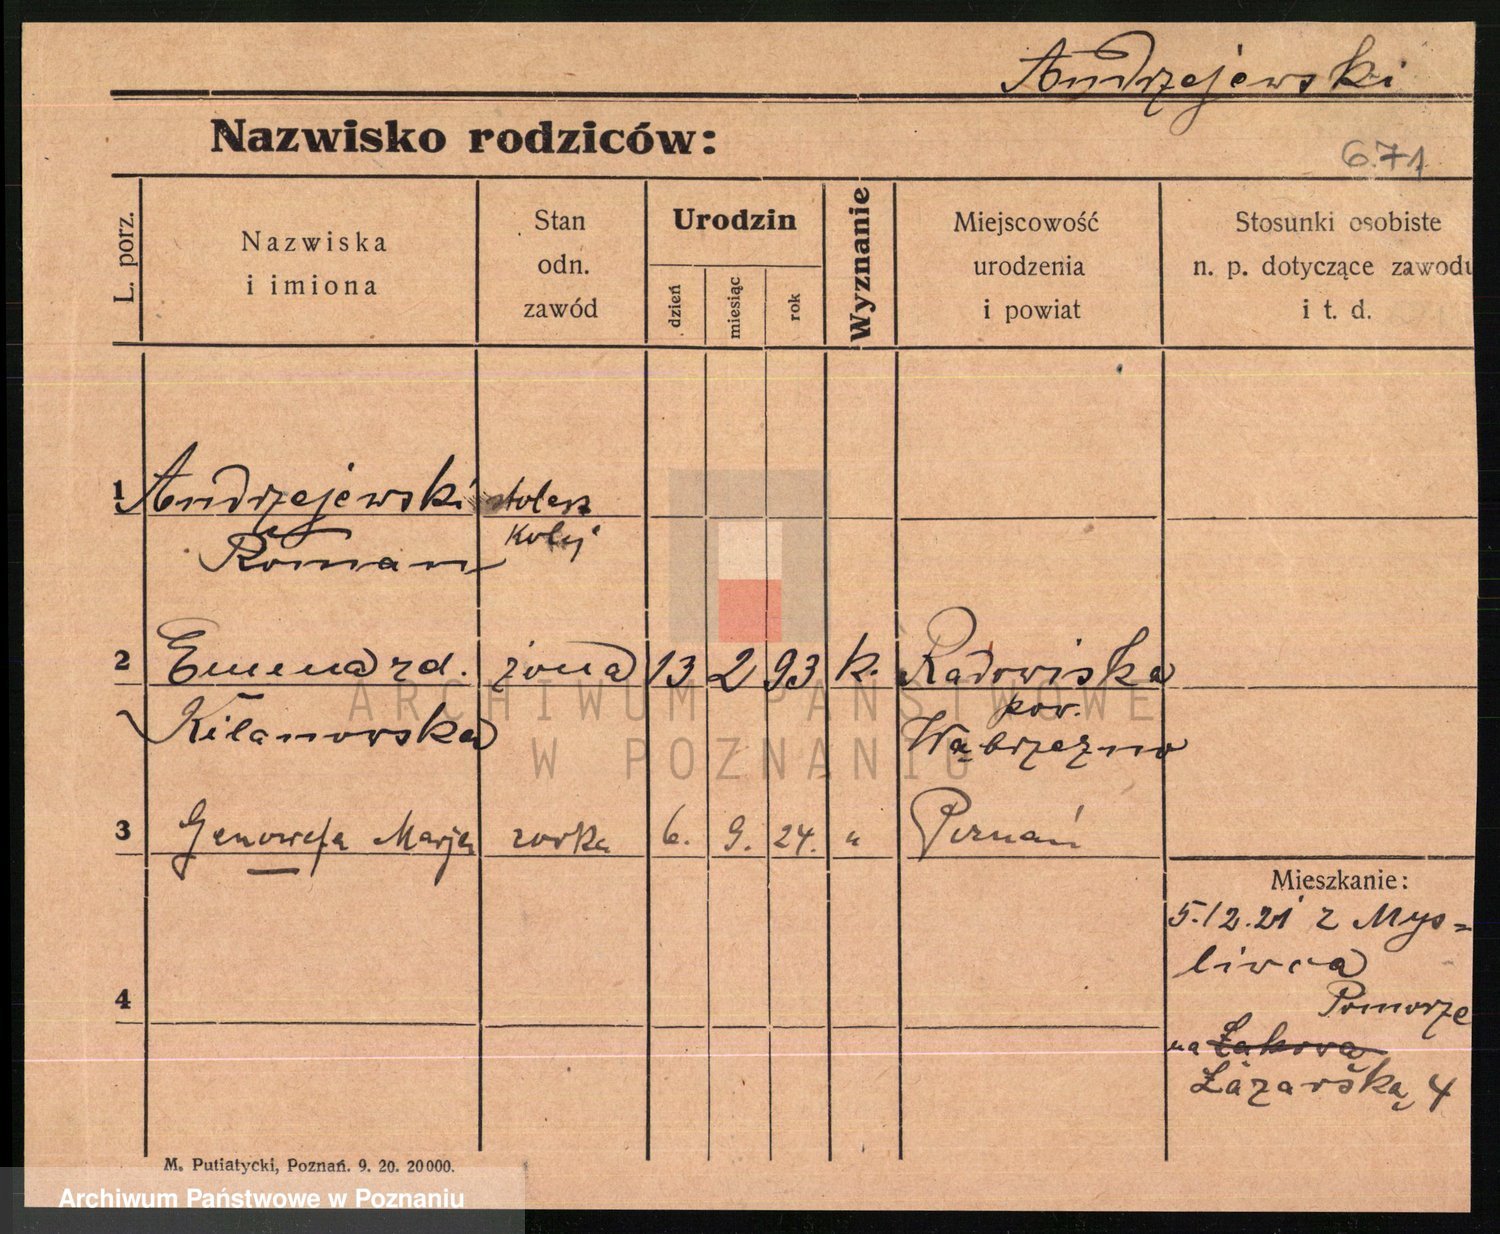 Andrzejewski
Nazwisko rodziców:
671
L. porz.
Nazwiska
i imiona
Stan
odn.
zawód
Urodzin
dzień
miesiąc
rok
Wyznanie
Miejscowość
urodzenia
i powiat
Stosunki osobiste
n. p. dotyczące zawodu
i t. d.
1 Andrzejewski stolarz
Roman kolej
2 Emma zd. żona 13 2 93 k. Radowiska
pow.
Kilanowska Wąbrzezno
3 Genowefa Marja córka 6. 9. 24. " Poznań
Mieszkanie:
5.12.21 z Mys=
liwca
4
Pomorze
na Łąkową
Łazarską 4
M. Putiatycki, Poznań. 9. 20. 20000.
ARCHIWUM PAŃSTWOWE
W POZNANIU
Archiwum Państwowe w Poznaniu